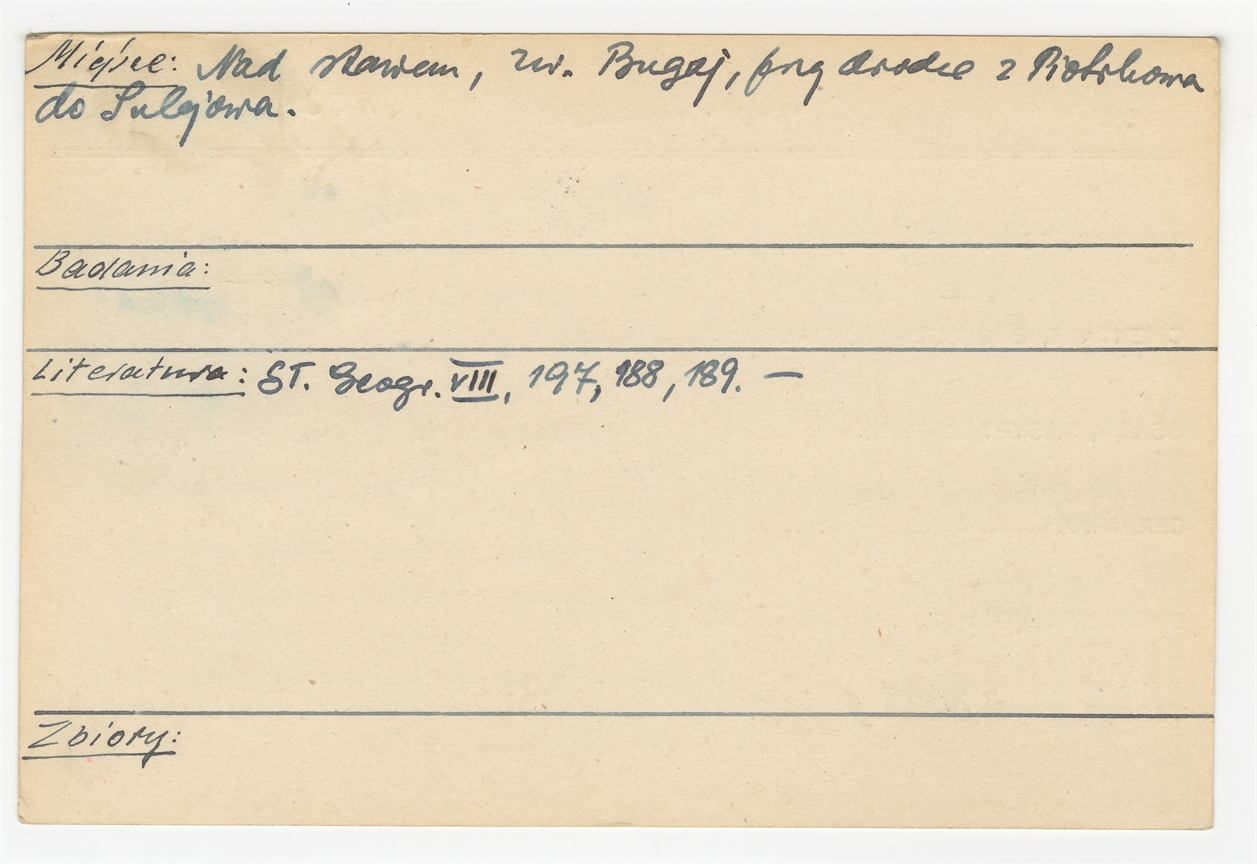 Miejsce: Nad stawem, zw. Bugaj, przy drodze z Piotrkowa
do Sulejowa.
Badania:
Literatura: ST. Geogr. VIII, 197, 188, 189. —
Zbiory: